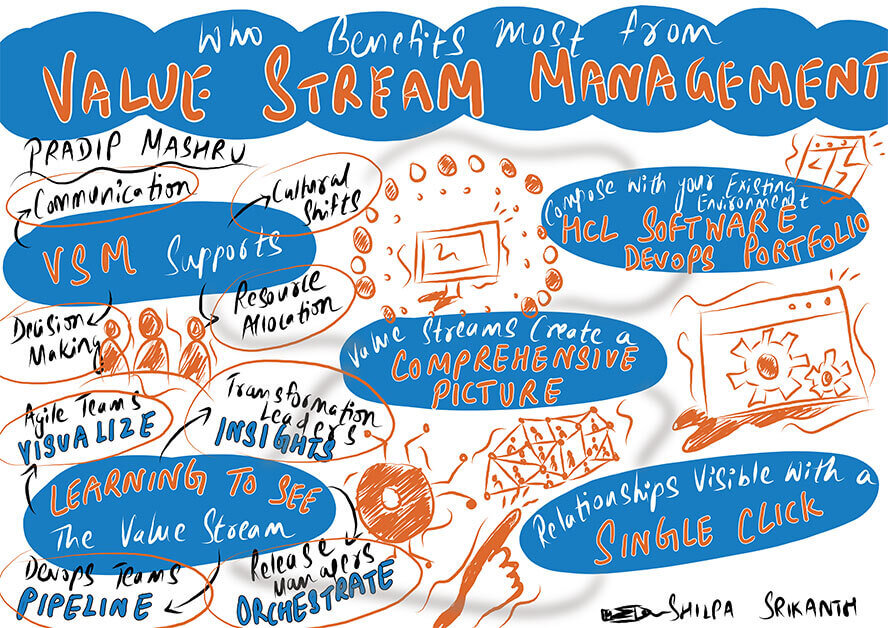 Who Benefits Most from
VALUE STREAM MANAGEMENT
PRADIP MASHRU
Communication
Cultural
Shifts
VSM Supports
Decision
Making
Resource
Allocation
Agile Teams
VISUALIZE
Transformation
Leaders
INSIGHTS
LEARNING TO SEE
The Value Stream
Devops Teams
PIPELINE
Release
Managers
ORCHESTRATE
Value Streams Create a
COMPREHENSIVE
PICTURE
Compose with your Existing
Environment
HCL SOFTWARE
DEVOPS PORTFOLIO
Relationships Visible with a
SINGLE CLICK
SHILPA SRIKANTH